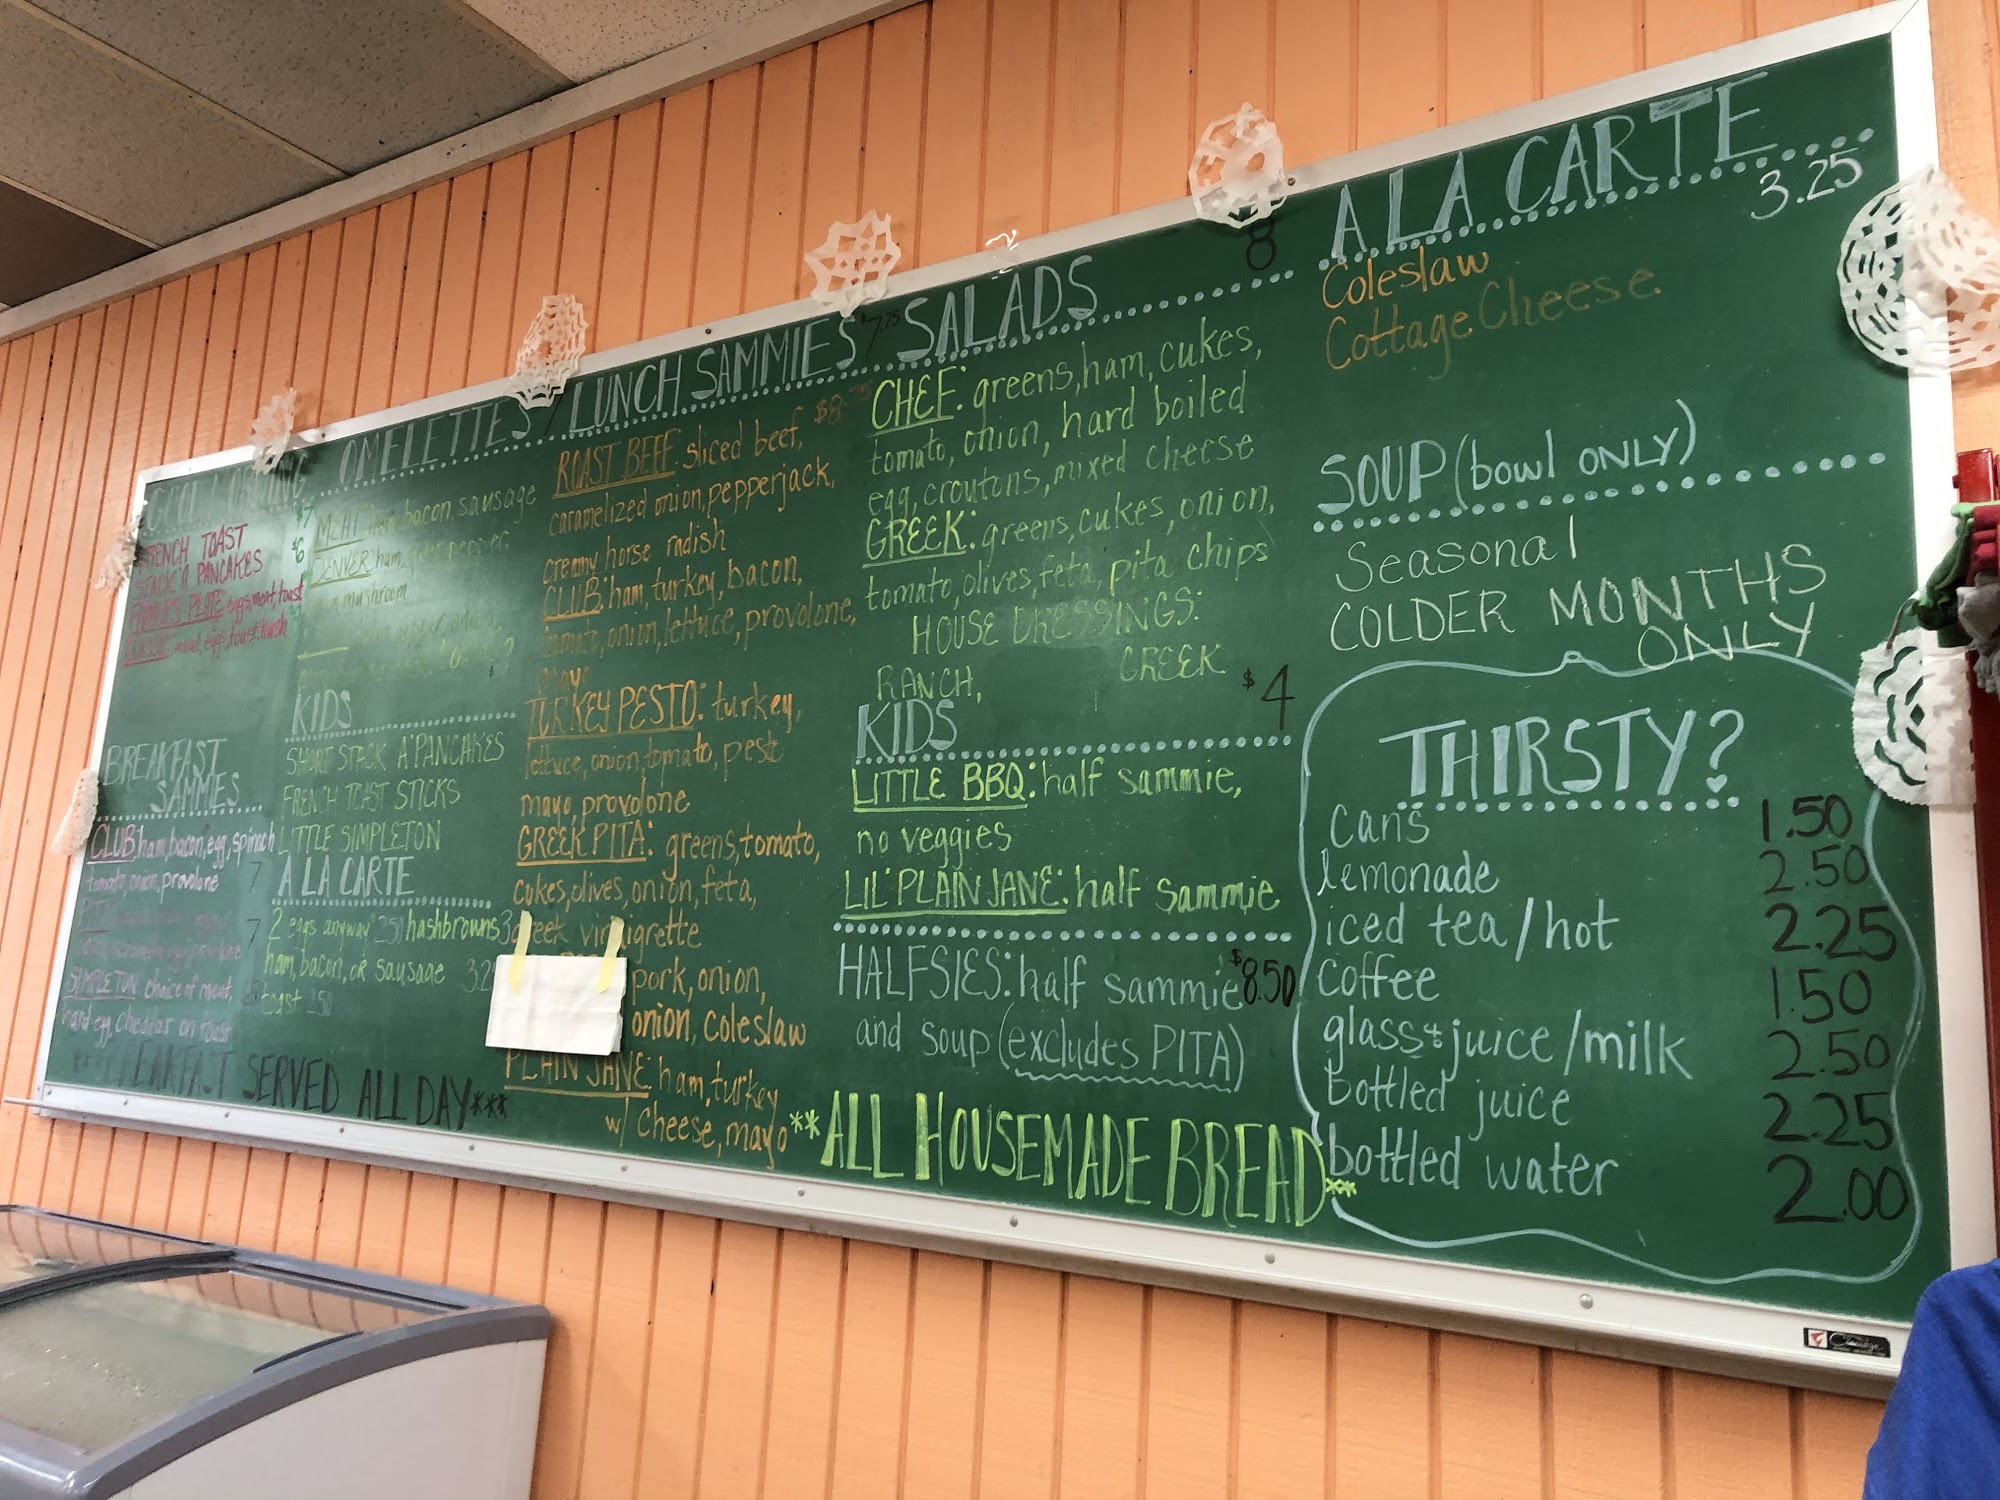 FRENCH TOAST
STACK A' PANCAKES
eggs, meat, toast
meat, eggs, toast, hash
$7
$6
BREAKFAST
SAMMIES
CLUB ham, bacon, egg, spinach
tomato, onion, provolone 7
7
SIMPLETON choice of meat,
hard egg, cheddar on toast
OMELETTES
MEAT ham, bacon, sausage
DENVER ham, green pepper,
mushroom
KIDS
SHORT STACK A' PANCAKES
FRENCH TOAST STICKS
LITTLE SIMPLETON
A LA CARTE
2 eggs anyway 2.50 hashbrowns 3
ham, bacon, or sausage 3.25
toast 2.50
SERVED ALL DAY***
LUNCH SAMMIES $7.75
ROAST BEEF: sliced beef,
caramelized onion, pepperjack,
creamy horse radish
CLUB: ham, turkey, bacon,
tomato, onion, lettuce, provolone,
mayo
TURKEY PESTO: turkey,
lettuce, onion, tomato, pesto
mayo, provolone
GREEK PITA: greens, tomato,
cukes, olives, onion, feta,
greek vinaigrette
pork, onion,
onion, coleslaw
PLAIN JANE: ham, turkey
w/ cheese, mayo
SALADS 8
CHEF: greens, ham, cukes,
tomato, onion, hard boiled
egg, croutons, mixed cheese
GREEK: greens, cukes, onion,
tomato, olives, feta, pita chips
HOUSE DRESSINGS:
RANCH, GREEK
KIDS $4
LITTLE BBQ: half sammie,
no veggies
LIL' PLAIN JANE: half sammie
HALFSIES: half sammie $8.50
and soup (excludes PITA)
**ALL HOUSEMADE BREAD**
A LA CARTE
3.25
Coleslaw
Cottage Cheese
SOUP (bowl ONLY)
Seasonal
COLDER MONTHS
ONLY
THIRSTY?
cans 1.50
lemonade 2.50
iced tea/hot 2.25
coffee 1.50
glass juice/milk 2.50
bottled juice 2.25
bottled water 2.00